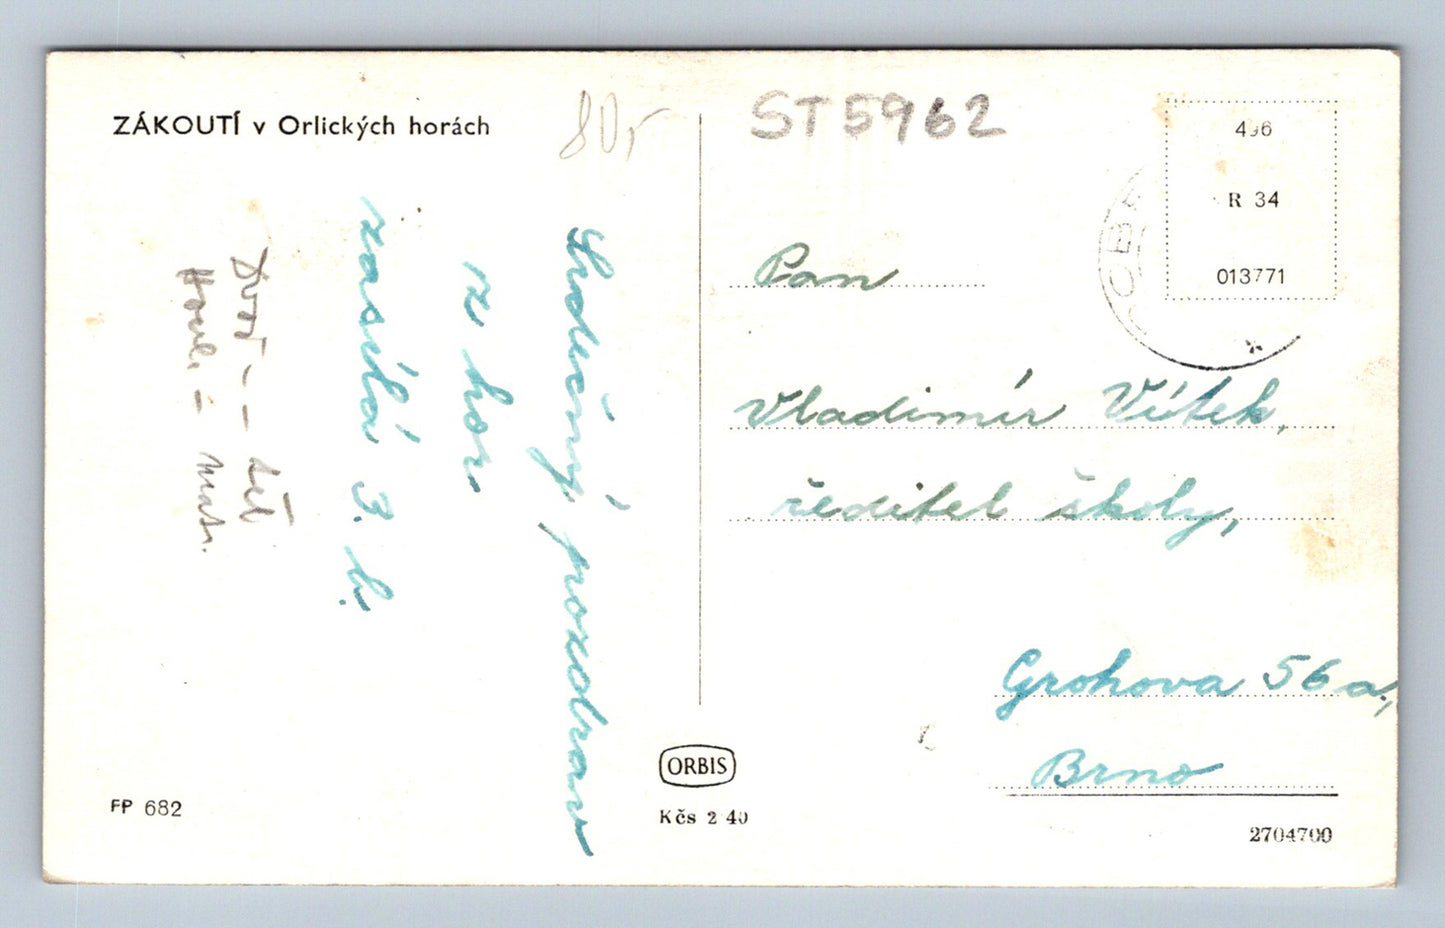 ZÁKOUTÍ v Orlických horách
80,-
ST5962
R 34
013771
Srdečný pozdrav
z hor
zasílá 3. b.
Pan
Vladimír Vítek,
ředitel školy,
Grohova 56a,
Brno
ORBIS
Kčs 2 40
FP 682
2704700